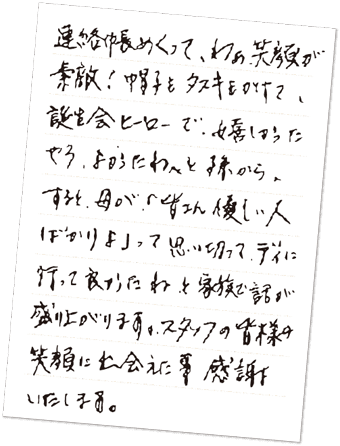 連絡帳めくって、わぁ笑顔が
素敵!帽子とタスキをかけて、
誕生会ヒーローで、嬉しかった
やろ、よかったわぁと孫から。
すると、母が、「皆さん優しい人
ばかりよ」って思い切って、デイに
行って良かったねと家族で話が
盛り上がります。スタッフの皆様の
笑顔に出会えた事感謝
いたします。